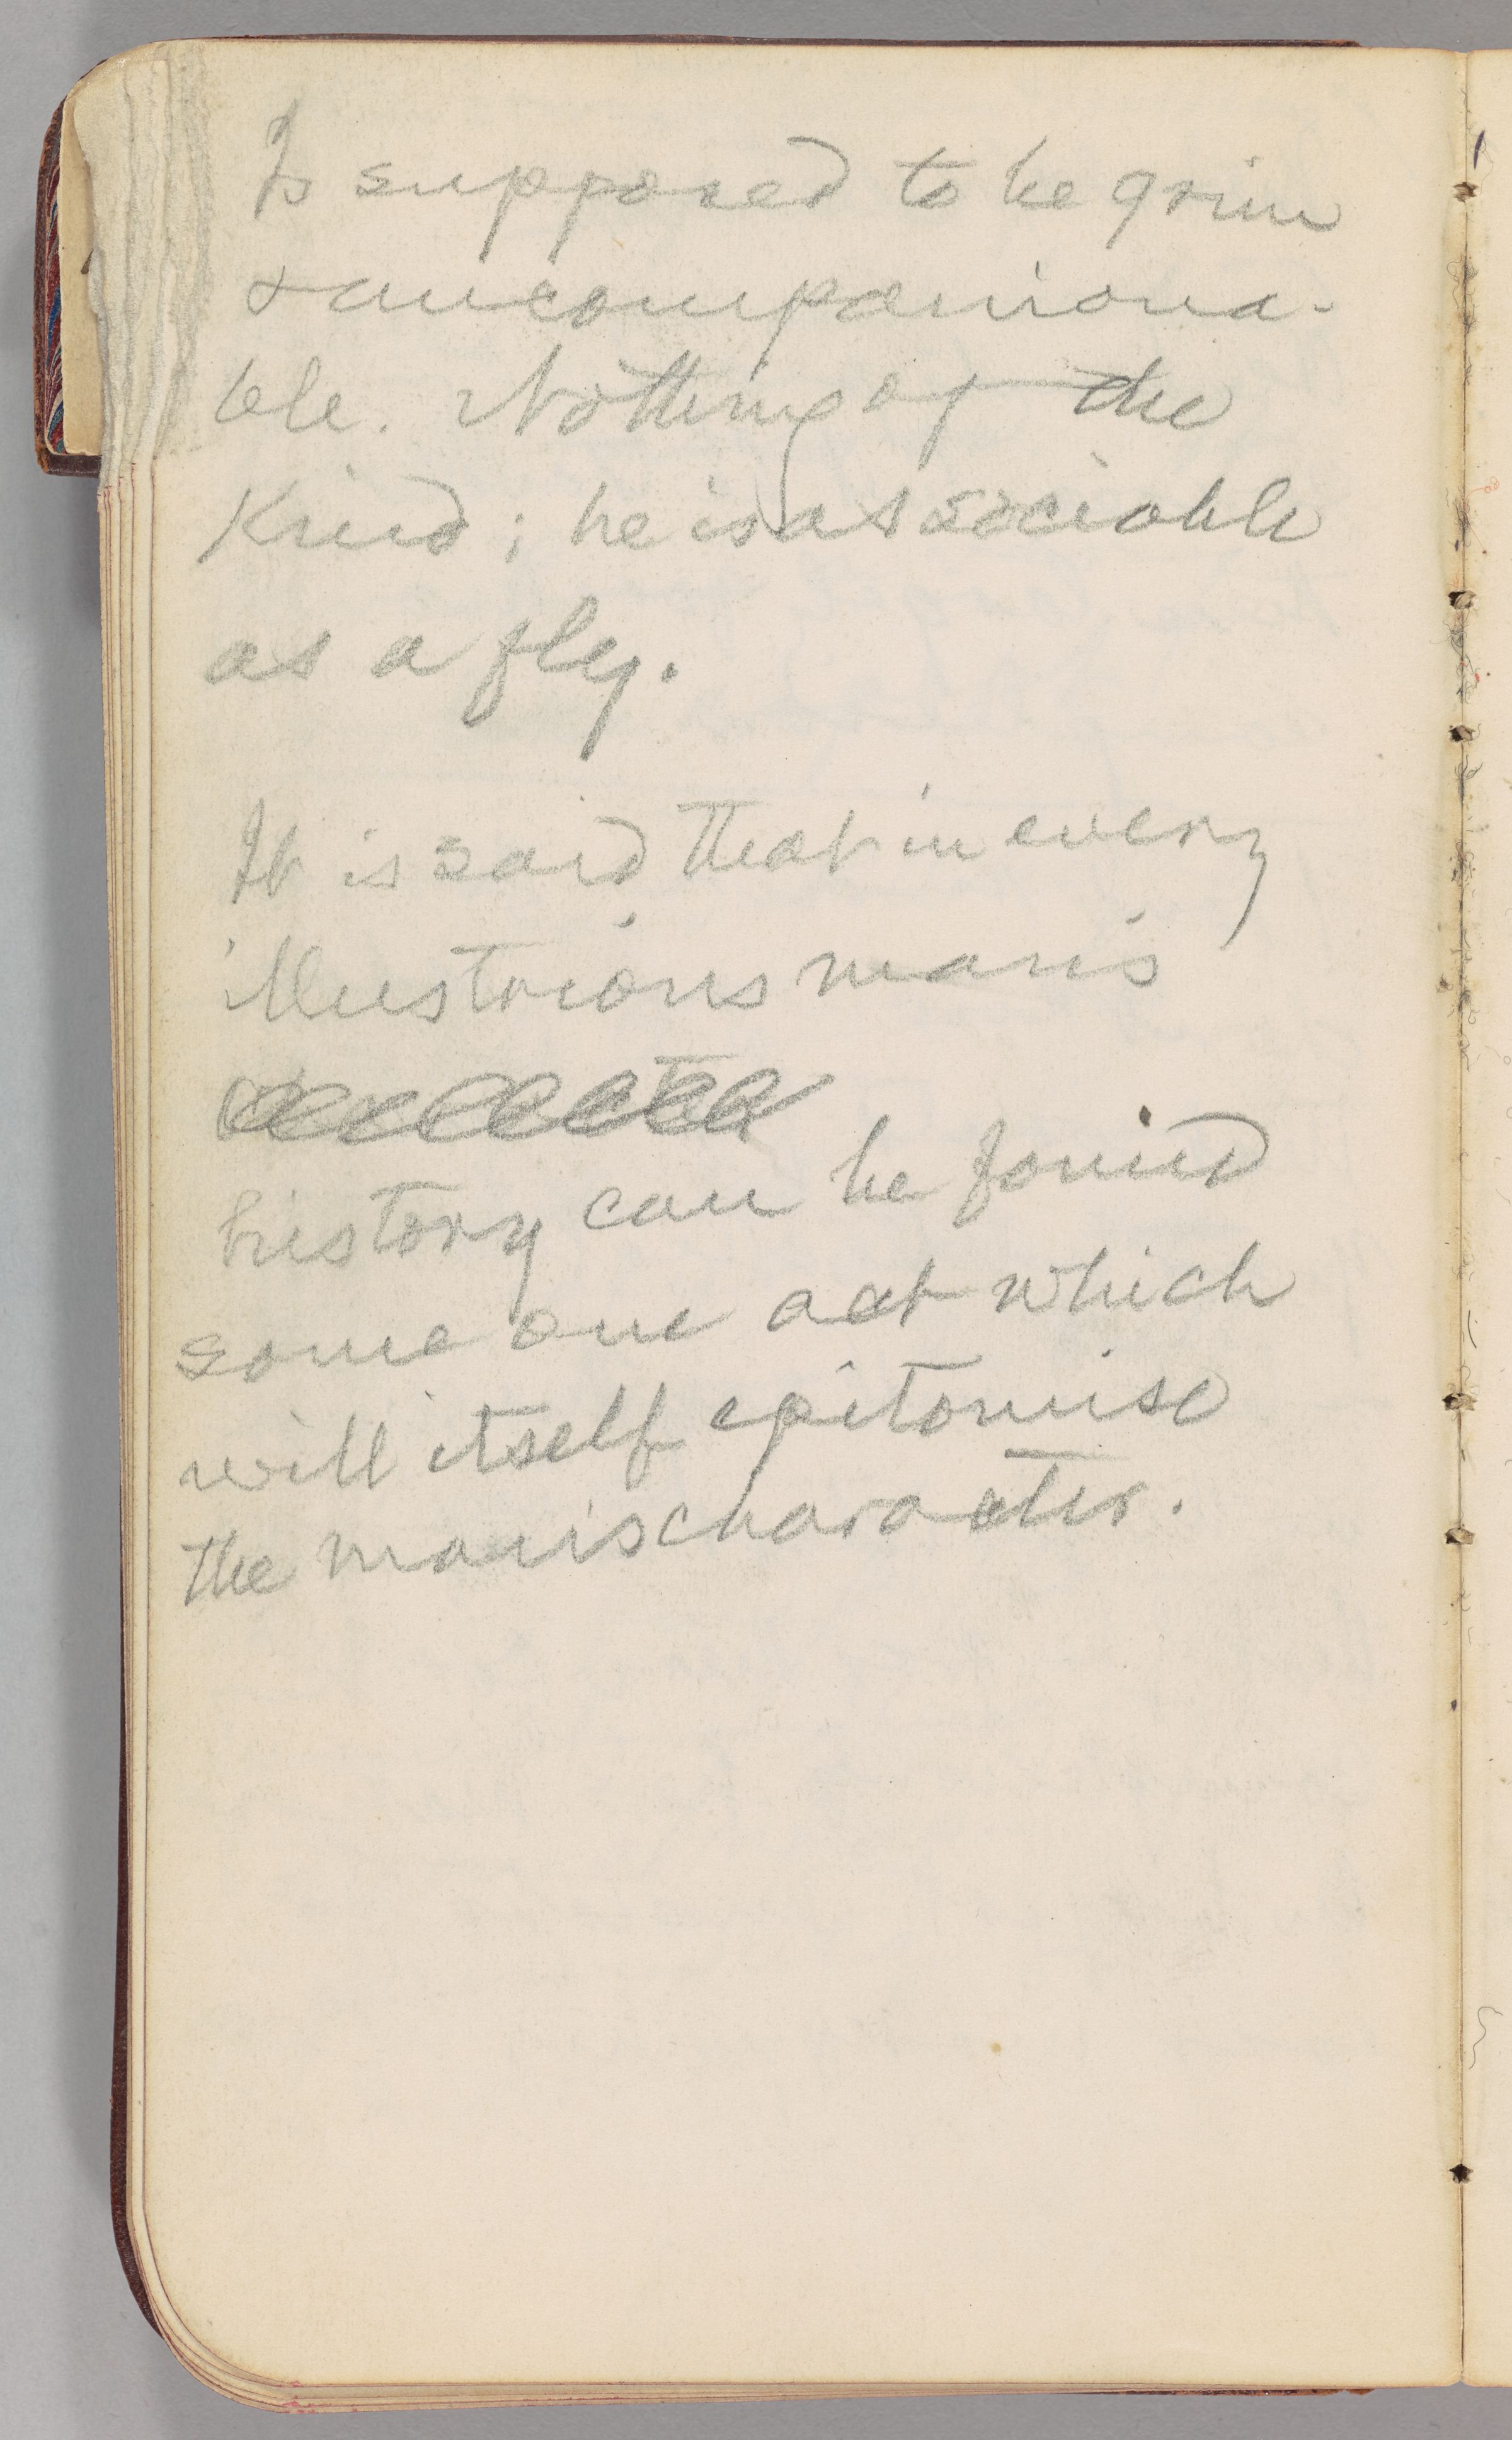 Is supposed to be grim
& uncompaniona-
ble. Nothing of the
kind; he is as sociable
as a fly.
It is said that in every
illustrious man's
history can be found
some one act which
will itself epitomise
the man's character.